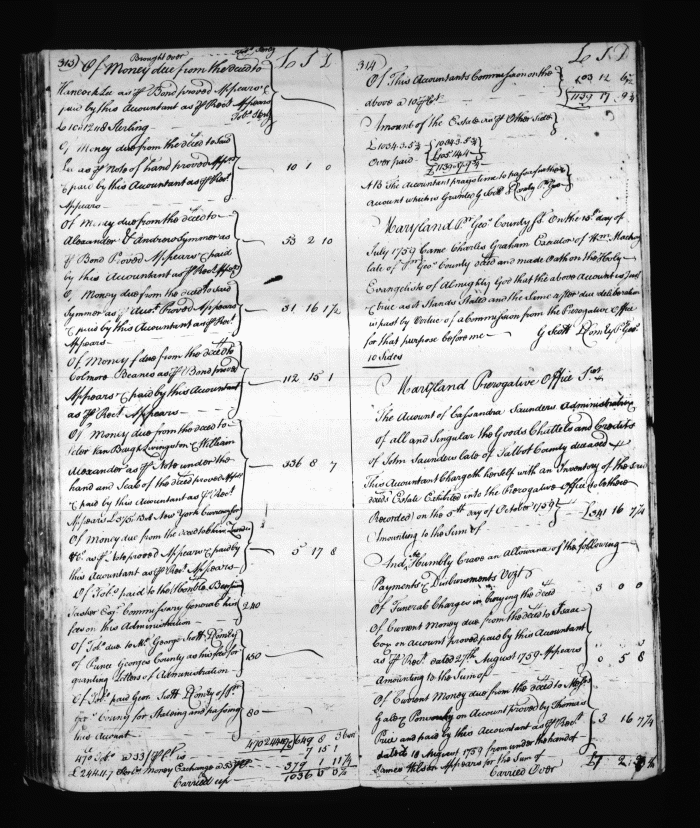 313)
Brought over
L S D
Of Money due from the deced to
Hancock Lee as Bond proved Appears &
paid by this Accountant as Rec.t Appears
Sterling
Of Money due from the deced to said
Lee as Note of hand proved Appears 10 1 0
& paid by this Accountant as Rec.t
Appears
Of Money due from the deced to
Alexander & Andrew Symmer as
Bond Proved Appears & paid 53 2 10
by this Accountant as Rec.t Appears
Of Money due from the deced to said
Symmer as Acco.t Proved Appears 31 16 1½
& paid by this Accountant as Rec.t
Appears
Of Money due from the deced to
Colmore Beanes as Bond proved
Appears & paid by this Accountant 112 15 1
as Rec.t Appears
Of Money due from the deced to
Peter Van Brugh Livingston & William
Alexander as Note under the 336 8 7
hand and Seal of the deced proved Appears
& paid by this Accountant as Rec.t
Appears New York
Of Money due from the deced to
as Note proved Appears & paid by 5 17 8
this Accountant as Rec.t Appears
Of Tob.o paid to the Hon.ble Benjamin
Tasker Esq.r Commissary General his 240
fees on this Administration
Of Tob.o due to Mr. George Scott D Comsy
of Prince Georges County as his fees for 150
granting Letters of Administration
Of Tob.o paid Geor. Scott D Comsy of Pr
Geo.s County for Stateing and passing 80
this Account
470 649 8 3
470 Tob.o is 7 15 1
Money Exchange 379 1 11¼
Carried up 1036
314
L S D
Of This Accountants Commission on the
above a 10 Ct 103 12 6½
1139 17 9¾
Amount of the Estate as Other Side
£1034.3.5¾ 1034.3.5¾
Over paid 105.14.4
£1139.17.9¾
NB The Accountant prays time to pass a further
Account which is Granted G Scott D Comsy Pr Geo
Maryland Pr Geo.s County Ss. On the 18th day of
July 1759 Came Charles Graham Executor of Wm. Mackay
late of Pr Geo.s County deced and made Oath on the Holy
Evangelists of Almighty God that the above Account is Just
& true as it Stands Stated and the same after due deliberation
is past by Vertue of a Commission from the Prerogative Office
for that purpose before me G Scott D Comsy Pr Geo.s
10 Sides
Maryland Prerogative Office Sst
The Account of Cassandra Saunders Administratrix
of all and Singular the Goods Chattels and Credits
of John Saunders late of Talbot County deceased
This Accountant Chargeth herself with an Inventory of the said
deceds Estate Exhibited into the Prerogative Office & there
Recorded on the 5th day of October 1759
Amounting to the Sum of £341 16 7¼
And Humbly Craves an Allowance of the following
Payments & Disbursments Vizt
Of Funeral Charges in burying the deced 3 0 0
Of Current Money due from the deced to Isaac
Cox on account proved & paid by this Accountant
as Rec.t dated 27th August 1759 Appears
Amounting to the Sum of 0 5 8
Of Current Money due from the deced to Messrs
on Account proved by Thomas
Price and paid by this Accountant as Rec.t 3 16 7¼
dated 18 August 1759 from under the hand of
James Wilson Appears for the Sum of
Carried Over £7 2 3¼